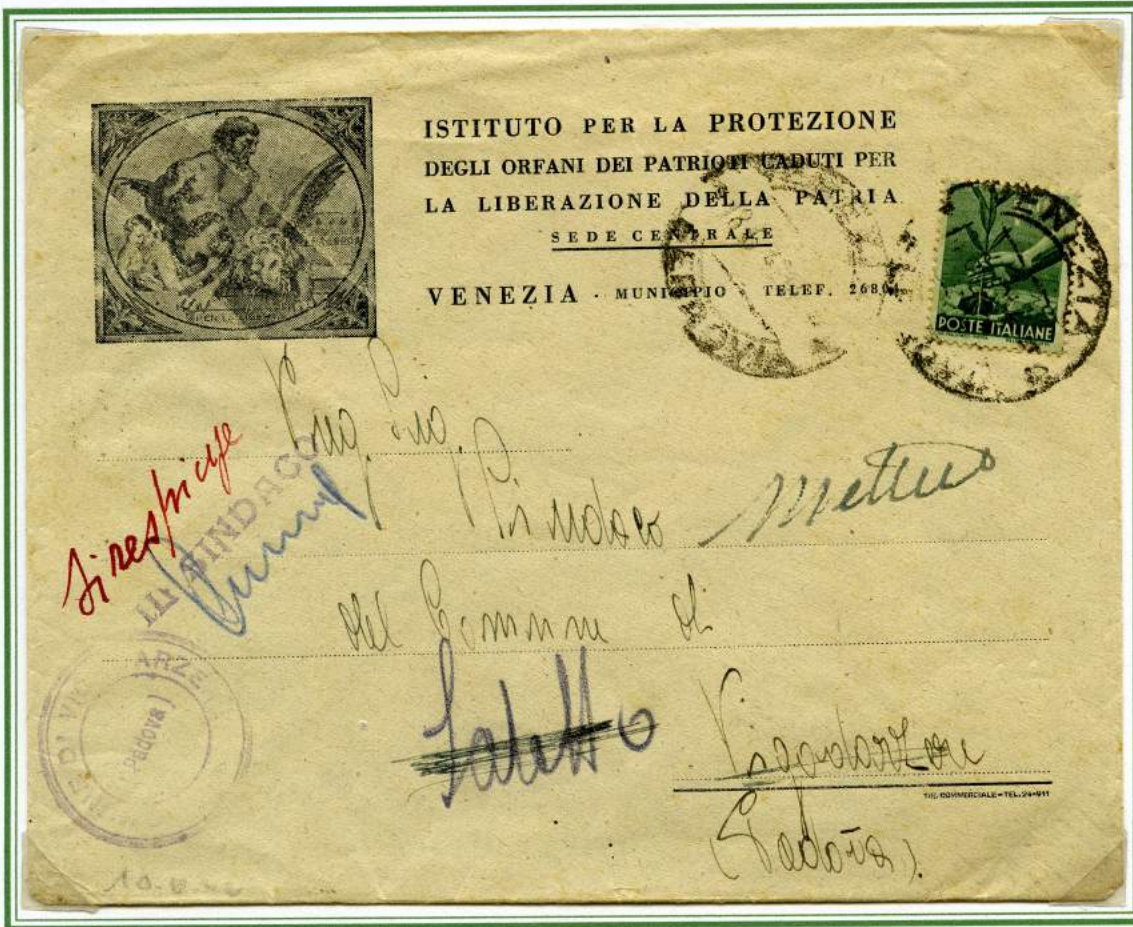 ISTITUTO PER LA PROTEZIONE
DEGLI ORFANI DEI PATRIOTI CADUTI PER
LA LIBERAZIONE DELLA PATRIA
SEDE CENTRALE
VENEZIA - MUNICIPIO - TELEF.
VENEZIA
POSTE ITALIANE
si respinge
IL SINDACO
Sindaco
del Comune di
Saletto
Vigodarzere
TIP. COMMERCIALE - TEL. 24-911
(Padova).
(Padova)